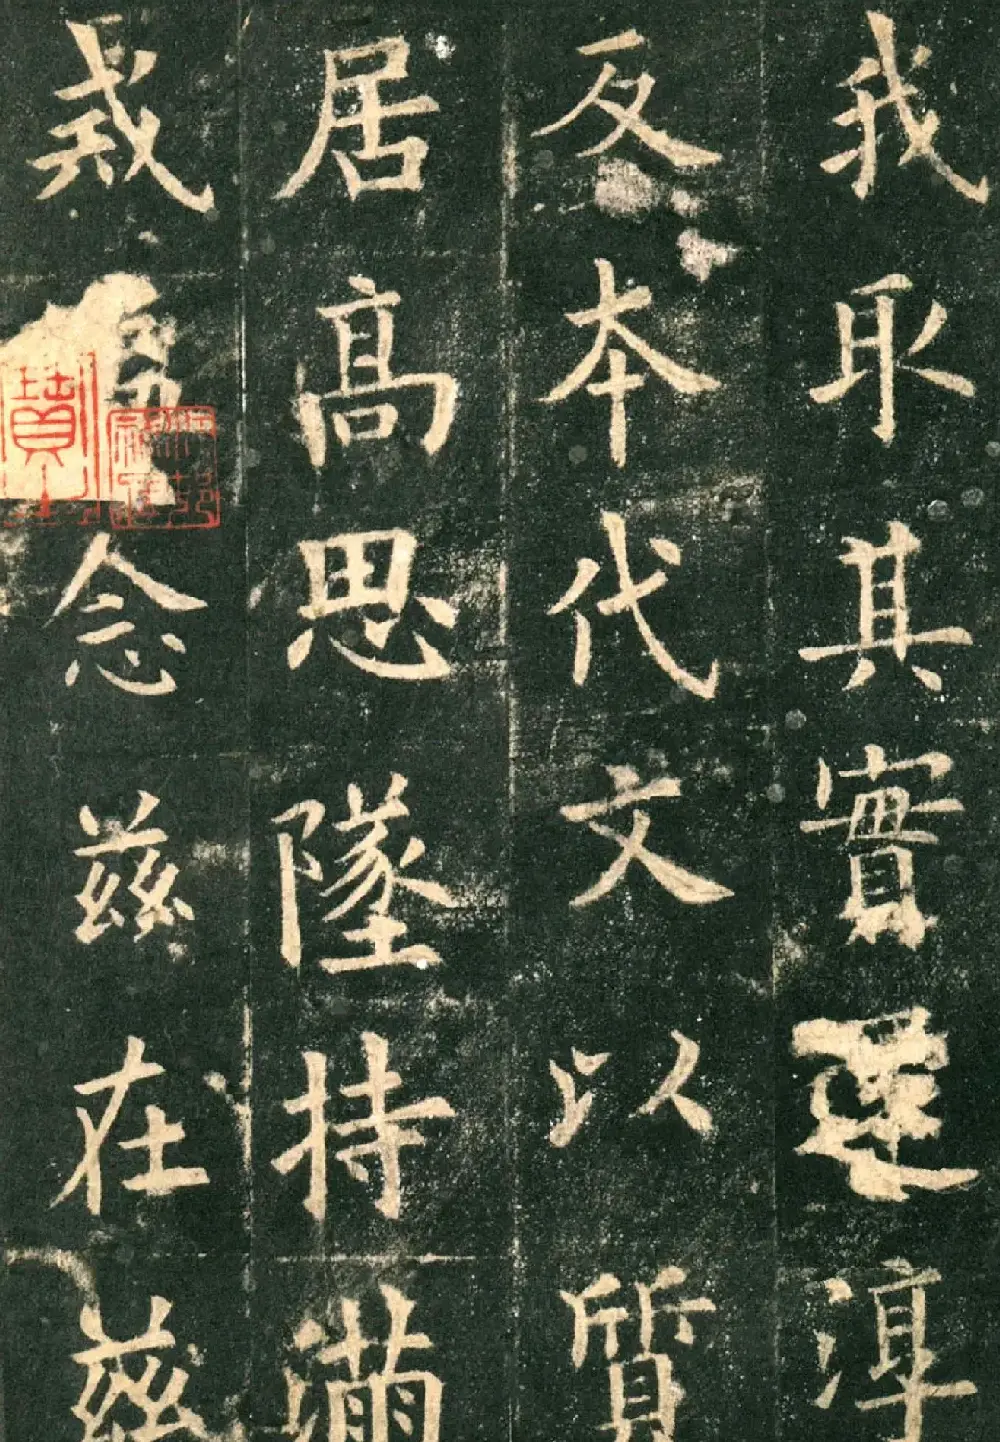 我取其實還淳
反本代文以質
居髙思墜持滿
戒念茲在茲